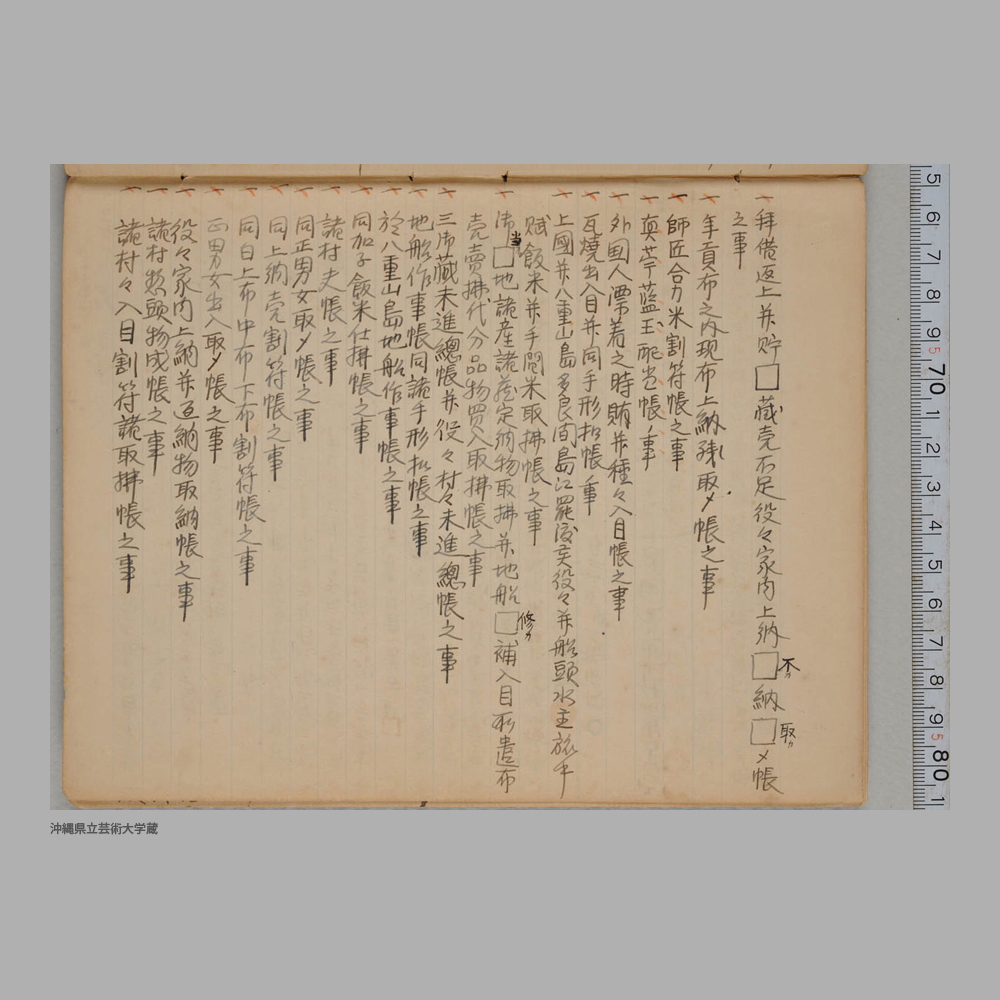 一 拝借返上并貯□蔵売不足役々家内上納□納□〆帳
不カ
取カ
之事
一 年貢布之内現布上納殊取〆帳之事
一 師匠合力米割符帳之事
一 真苧藍玉配当帳ノ事
一 外國人漂着之時賄并種々入目帳之事
一 瓦焼出入目并同手形扣帳ノ事
一 上國并八重山島多良間島江罷渡候役々并船頭水主旅中
賦飯米并手間米取拂帳之事
一 御□地諸産諸蔵定納物取拂并地船□補入目所遣布
当
修カ
売賣拂代分品物買入取拂帳之事
一 三御蔵未進總帳并役々村々未進總帳之事
一 地船作事帳同諸手形扣帳之事
一 於八重山島地船作事帳之事
一 同加子飯米仕拂帳之事
一 諸村夫帳之事
一 同正男女取〆帳之事
一 同上納売割符帳之事
一 同白上布中布下布割符帳之事
一 正男女出入取〆帳之事
一 役々家内上納并返納物取納帳之事
一 諸村惣頭物成帳之事
一 諸村々入目割符諸取拂帳之事
沖縄県立芸術大学蔵
5 6 7 8 9 70 1 2 3 4 5 6 7 8 9 80 1